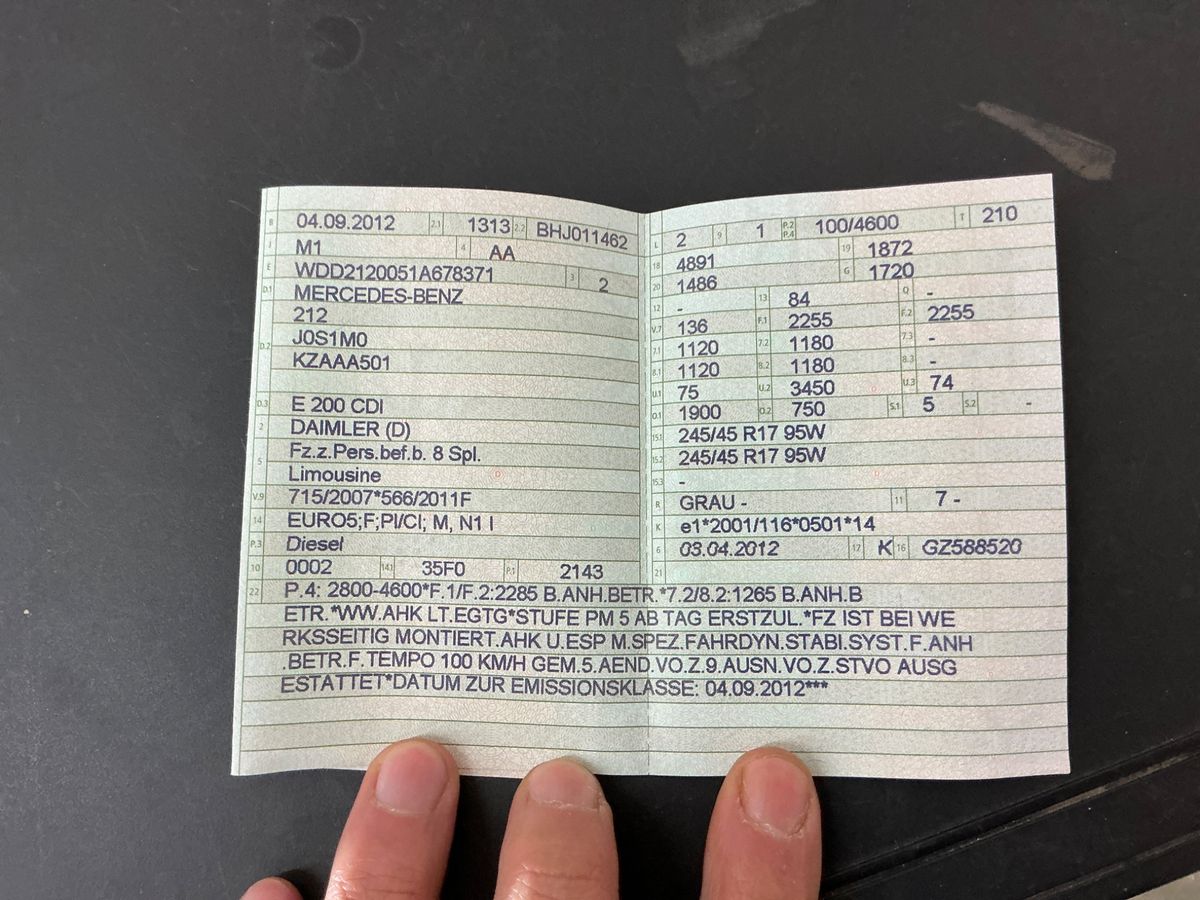 B 04.09.2012 2.1 1313 2.2 BHJ011462
J M1 4 AA
E WDD2120051A678371 3 2
D.1 MERCEDES-BENZ
212
D.2 J0S1M0
KZAAA501
D.3 E 200 CDI
2 DAIMLER (D)
5 Fz.z.Pers.bef.b. 8 Spl.
Limousine
V.9 715/2007*566/2011F
14 EURO5;F;PI/CI; M, N1 I
P.3 Diesel
10 0002 14.1 35F0 P.1 2143
L 2 9 1 P.2 P.4 100/4600 T 210
18 4891 19 1872
20 1486 G 1720
12 - 13 84 Q -
V.7 136 F.1 2255 F.2 2255
7.1 1120 7.2 1180 7.3 -
8.1 1120 8.2 1180 8.3 -
U.1 75 U.2 3450 U.3 74
O.1 1900 O.2 750 S.1 5 S.2 -
15.1 245/45 R17 95W
15.2 245/45 R17 95W
15.3 -
R GRAU - 11 7 -
K e1*2001/116*0501*14
6 03.04.2012 17 K 16 GZ588520
21
22 P.4: 2800-4600*F.1/F.2:2285 B.ANH.BETR.*7.2/8.2:1265 B.ANH.B
ETR.*WW.AHK LT.EGTG*STUFE PM 5 AB TAG ERSTZUL.*FZ IST BEI WE
RKSSEITIG MONTIERT.AHK U.ESP M.SPEZ.FAHRDYN.STABI.SYST.F.ANH
.BETR.F.TEMPO 100 KM/H GEM.5.AEND.VO.Z.9.AUSN.VO.Z.STVO AUSG
ESTATTET*DATUM ZUR EMISSIONSKLASSE: 04.09.2012***